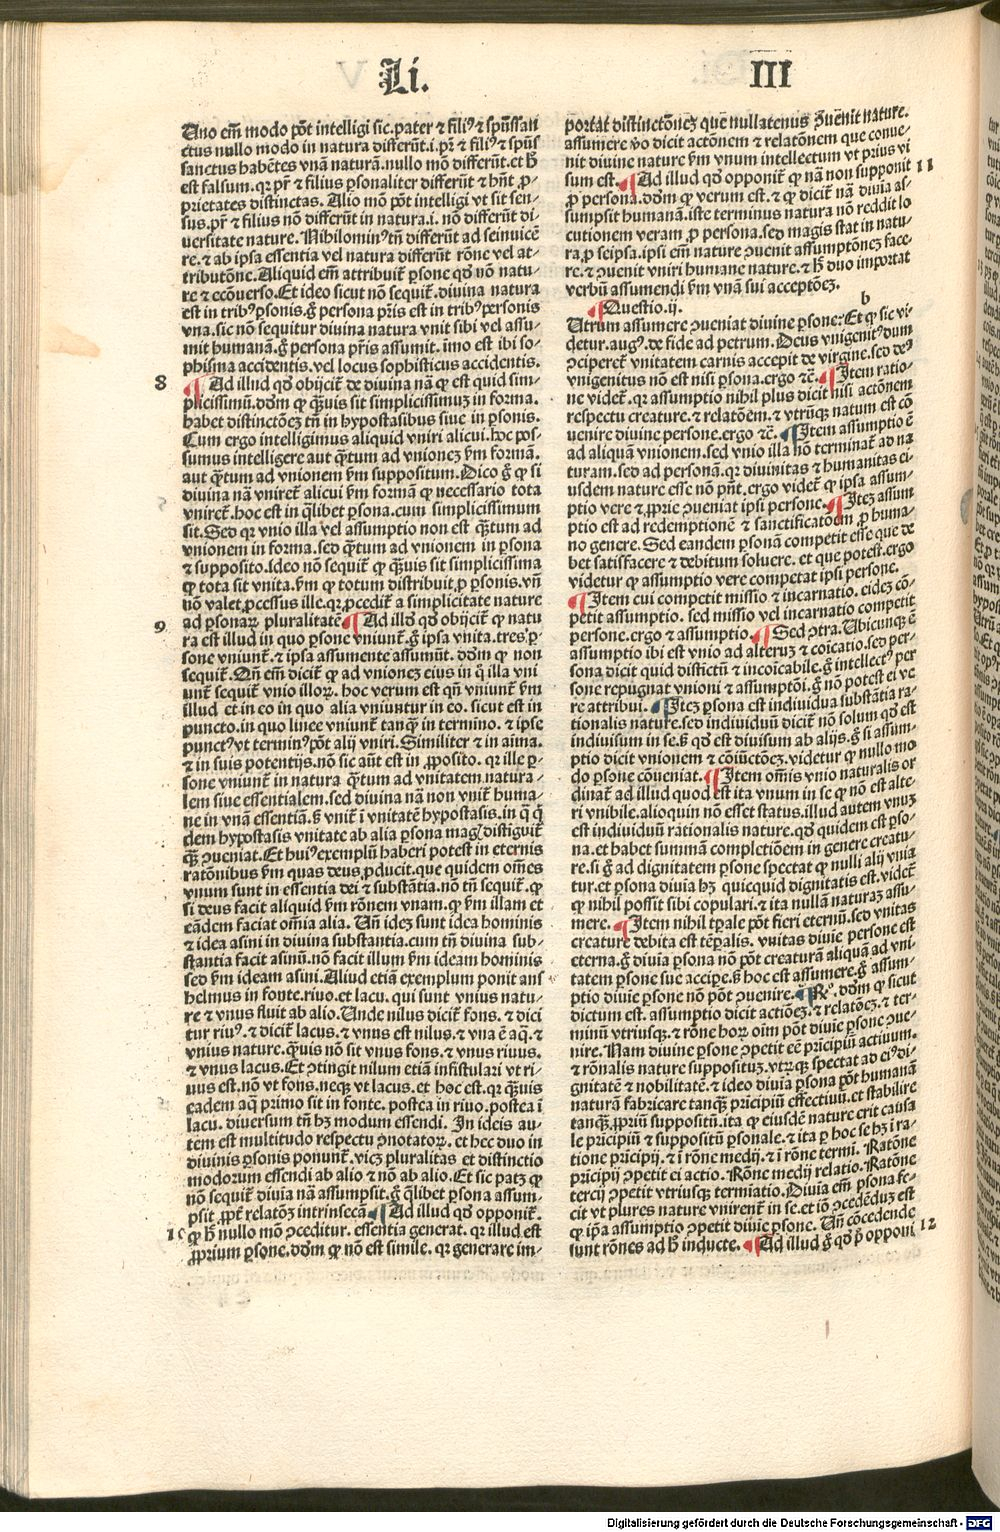 Li.
III
Uno em̄ modo põt intelligi sic. pater ⁊ filiꝰ ⁊ spūssan
ctus nullo modo in natura differūt. i. pr̄ ⁊ filiꝰ ⁊ spūs
sanctus habētes vnā naturā. nullo mō differūt. et h̄
est falsum. qꝛ pr̄ ⁊ filius ꝑsonaliter differūt ⁊ hn̄t ꝓ-
prietates distinctas. Alio mō põt intelligi vt sit sen-
sus. pr̄ ⁊ filius nō differūt in natura. i. nō differūt di-
uersitate nature. Nihilominꝰ tn̄ differūt ad seinuicē
re. ⁊ ab ipsa essentia vel natura differūt rōne vel at-
tributōne. Aliquid em̄ attribuit̄ ꝑsone qd̄ nō natu-
re ⁊ ecōuerso. Et ideo sicut nōn sequit̄. diuina natura
est in tribꝰ ꝑsonis. g̊ persona pr̄is est in tribꝰ personis
vna. sic nōn sequitur diuina natura vnit sibi vel assu-
mit humanā. g̊ persona pr̄is assumit. imo est ibi so-
phisma accidentis. vel locus sophisticus accidentis.
8 ¶ Ad illud qd̄ obijcit̄ de diuina nā̄ ꝙ est quid sim-
plicissimū. dd̄m ꝙ q̄uis sit simplicissimuꝫ in forma.
habet distinctōeꝫ tn̄ in hypostasibus siue in ꝑsonis.
Cum ergo intelligimus aliquid vniri alicui. hoc pos-
sumus intelligere aut q̄tum ad vnioneꝫ ẜm formā.
aut q̄tum ad vnionem ẜm suppositum. Dico g̊ ꝙ si
diuina nā vniret̄ alicui ẜm formā ꝙ necessario tota
vniret̄. hoc est in q̄libet ꝑsona. cum simplicissimum
sit. Sed qꝛ vnio illa vel assumptio non est q̄tum ad
vnionem in forma. sed q̄tum ad vnionem in ꝑsona
⁊ supposito. ideo nōn sequit̄ ꝙ q̄uis sit simplicissima
ꝙ tota sit vnita. ẜm ꝙ totum distribuit̄ ꝓ ꝑsonis. vn̄
nō valet ꝓcessus ille. qꝛ ꝓcedit̄ a simplicitate nature
ad ꝑsonaꝝ pluralitatē ¶ Ad illd̄ qd̄ obijcit̄ ꝙ natu
9 ra est illud in quo ꝑsone vniunt̄. g̊ ipsa vnita. tres ꝑ-
sone vniunt̄. ⁊ ipsa assumente assumūt. dd̄m ꝙ non
sequit̄. Qn̄ em̄ dicit̄ ꝙ ad vnioneꝫ eius in q̊ illa vni
unt̄ sequit̄ vnio illoꝝ. hoc verum est qn̄ vniunt̄ ẜm
illud et in eo in quo alia vniuntur in eo. sicut est in
puncto. in quo linee vniunt̄ tanq̄ in termino. ⁊ ipse
punctꝰ vt terminꝰ põt alij vniri. Similiter ⁊ in aīma.
⁊ in suis potentijs. nōn sic aūt est in ꝓposito. qꝛ ille ꝑ-
sone vniunt̄ in natura q̄tum ad vnitatem natura-
lem siue essentialem. sed diuina nā non vnit̄ huma-
ne in vnā essentiā. ẜ vnit̄ ī vnitatē hypostasis. in q̊ q̄
dem hypostasis vnitate ab alia ꝑsona mag̊ distiguit̄
q̄ꝫ ꝯueniat. Et huiꝰ exemplū haberi potest in eternis
ratōnibus ẜm quas deus ꝓducit. que quidem om̄es
vnum sunt in essentia dei ⁊ substātia. nō tn̄ sequit̄. ꝙ
si deus facit aliquid ẜm rōnem vnam. ꝙ ẜm illam et
eādem faciat om̄ia alia. Un̄ ideꝫ sunt idea hominis
⁊ idea asini in diuina substantia. cum tn̄ diuina sub-
stantia facit asinū. nō facit illum ẜm ideam hominis
sed ẜm ideam asini. Aliud etiā exemplum ponit ans
helmus in fonte. riuo. et lacu. qui sunt vnius natu-
re ⁊ vnus fluit ab alio. Unde nilus dicit̄ fons. ⁊ dici
tur riuꝰ. ⁊ dicit̄ lacus. ⁊ vnus est nilus. ⁊ vna ē aq̄. ⁊
vnius nature. q̄uis nō sit vnus fons. ⁊ vnus riuus.
⁊ vnus lacus. Et ꝯtingit nilum etiā infistulari vt ri-
uus est. nō vt fons. neqꝫ vt lacus. et hoc est. qꝛ q̄uis
eadem aq̄ primo sit in fonte. postea in riuo. postea ī
lacu. diuersum tn̄ hꝫ modum essendi. In ideis au-
tem est multitudo respectu ꝯnotatoꝝ. et hec duo in
diuinis ꝑsonis ponunt̄. vicꝫ pluralitas et distinctio
modorum essendi ab alio ⁊ nō ab alio. Et sic patꝫ ꝙ
nō sequit̄ diuīa nā assumpsit. g̊ q̄libet ꝑsona assum-
psit. ꝓpt̄ relatōꝫ intrinsecā ¶ Ad illud qd̄ opponit̄.
10 ꝙ h̄ nullo mō ꝯceditur. essentia generat. qꝛ illud est
ꝓprium ꝑsone. dd̄m ꝙ nō est simile. qꝛ generare im-
portat distinctōneꝫ que nullatenus ꝯuenit nature.
assumere v̊o dicit actōnem ⁊ relatōnem que conue-
nit diuine nature ẜm vnum intellectum vt prius vi
sum est. ¶ Ad illud qd̄ opponit̄ ꝙ nā non supponit 11
ꝓ persona. dd̄m ꝙ verum est. ⁊ ꝙ dicit̄ nā diuīa as-
sumpsit humanā. iste terminus natura nō reddit lo
cutionem veram ꝓ persona. sed magis stat in natu-
ra ꝓ seipsa. ipsi em̄ nature ꝯuenit assumptōneꝫ face-
re. ⁊ ꝯuenit vniri humane nature. ⁊ h̄ duo importat
verbū assumendi ẜm vnā sui acceptōeꝫ.
¶ Questio .ij. b
Utrum assumere ꝯueniat diuine ꝑsone. Et ꝙ sic vi
detur. augꝰ. de fide ad petrum. Deus vnigenitꝰ dum
ꝯciperet̄ vnitatem carnis accepit de virgine. sed deꝰ
vnigenitus nō est nisi ꝑsona. ergo ⁊c̄. ¶ Item ratio-
ne videt̄. qꝛ assumptio nihil plus dicit nisi actōnem
respectu creature. ⁊ relatōem. ⁊ vtrūqꝫ natum est cō
uenire diuine persone. ergo ⁊c̄. ¶ Item assumptio ē
ad aliquam vnionem. sed vnio illa nō terminat̄ ad na
turam. sed ad personā. qꝛ diuinitas ⁊ humanitas ei-
usdem nature esse nō pn̄t. ergo videt̄ ꝙ ipsa assum-
ptio vere ⁊ ꝓprie ꝯueniat ipsi persone. ¶ Iteꝫ assum
ptio est ad redemptionē ⁊ sanctificatōem ꝓ huma-
no genere. Sed eandem ꝑsonā competit esse que de
bet satisfacere ⁊ debitum soluere. et que potest. ergo
videtur ꝙ assumptio vere competat ipsi persone.
¶ Item cui competit missio ⁊ incarnatio. eideꝫ cō-
petit assumptio. sed missio vel incarnatio competit
persone. ergo ⁊ assumptio. ¶ Sed ꝯtra. Ubicunqꝫ ē
assumptio ibi est vnio ad alteruꝫ ⁊ cōicatio. sed per-
sona dicit quid distictū ⁊ incōicabile. g̊ intellectꝰ per
sone repugnat vnioni ⁊ assumptōi. g̊ nō potest ei ve
re attribui. ¶ Iteꝫ ꝑsona est indiuidua substātia ra-
tionalis nature. sed indiuiduū dicit̄ nō solum qd̄ est
indiuisum in se. ẜ qd̄ est diuisum ab alijs. g̊ si assum-
ptio dicit vnionem ⁊ cōiūctōeꝫ. videtur ꝙ nullo mo
do ꝑsone cōueniat. ¶ Item om̄is vnio naturalis or
dinat̄ ad illud quod est ita vnum in se ꝙ nō est alte-
ri vnibile. alioquin nō esset status. illud autem vnuꝫ
est indiuiduū rationalis nature. qd̄ quidem est ꝑso-
na. et habet summā completiōem in genere creatu-
re. si g̊ ad dignitatem ꝑsone spectat ꝙ nulli alij vnia
tur. et ꝑsona diuīa hꝫ quicquid dignitatis est. videt̄
ꝙ nihil possit sibi copulari. ⁊ ita nullā naturaꝫ assu-
mere. ¶ Item nihil tꝑale põt fieri eternū. sed vnitas
creature debita est tēꝑalis. vnitas diuīe persone est
eterna. g̊ diuīa ꝑsona nō põt creaturā aliquā ad vni-
tatem ꝑsone sue accipe. ẜ hoc est assumere. g̊ assum-
ptio diuīe ꝑsone nō põt ꝯuenire. ¶ R̊. dd̄m ꝙ sicut
dictum est. assumptio dicit actiōeꝫ. ⁊ relatōeꝫ. ⁊ ter-
minū vtriusqꝫ. ⁊ rōne hoꝝ oīm põt diuīe ꝑsone ꝯue-
nire. Nam diuine ꝑsone ꝯpetit eē pricipiū actiuum.
⁊ rōnalis nature suppositꝫ. vtrūqꝫ spectat ad eiꝰ di-
gnitatē ⁊ nobilitatē. ⁊ ideo diuīa ꝑsona põt humanā
naturā fabricare tanqꝫ pricipiū effectiuū. et stabilire
tanqꝫ ꝓpriū suppositū. ita ꝙ eiusdē nature erit causa
le pricipiū ⁊ suppositū ꝑsonale. ⁊ ita ꝑ hoc se hꝫ ī ra-
tione pricipij. ⁊ ī rōne medij. ⁊ ī rōne termī. Ratōne
pricipij ꝯpetit ei actio. Rōne medij relatio. Ratōne
tercij ꝯpetit vtriusqꝫ termiatio. Diuīa em̄ ꝑsona fe-
cit vt plures nature vnirent̄ in se. et iō ꝯcedēduꝫ est
ꝙ ip̄a assumptio ꝯpetit diuīe ꝑsone. Un̄ cōcedende
sunt rōnes ad h̄ inducte. ¶ Ad illud g̊ qd̄ p̊ opponi 12
Digitalisierung gefördert durch die Deutsche Forschungsgemeinschaft - DFG